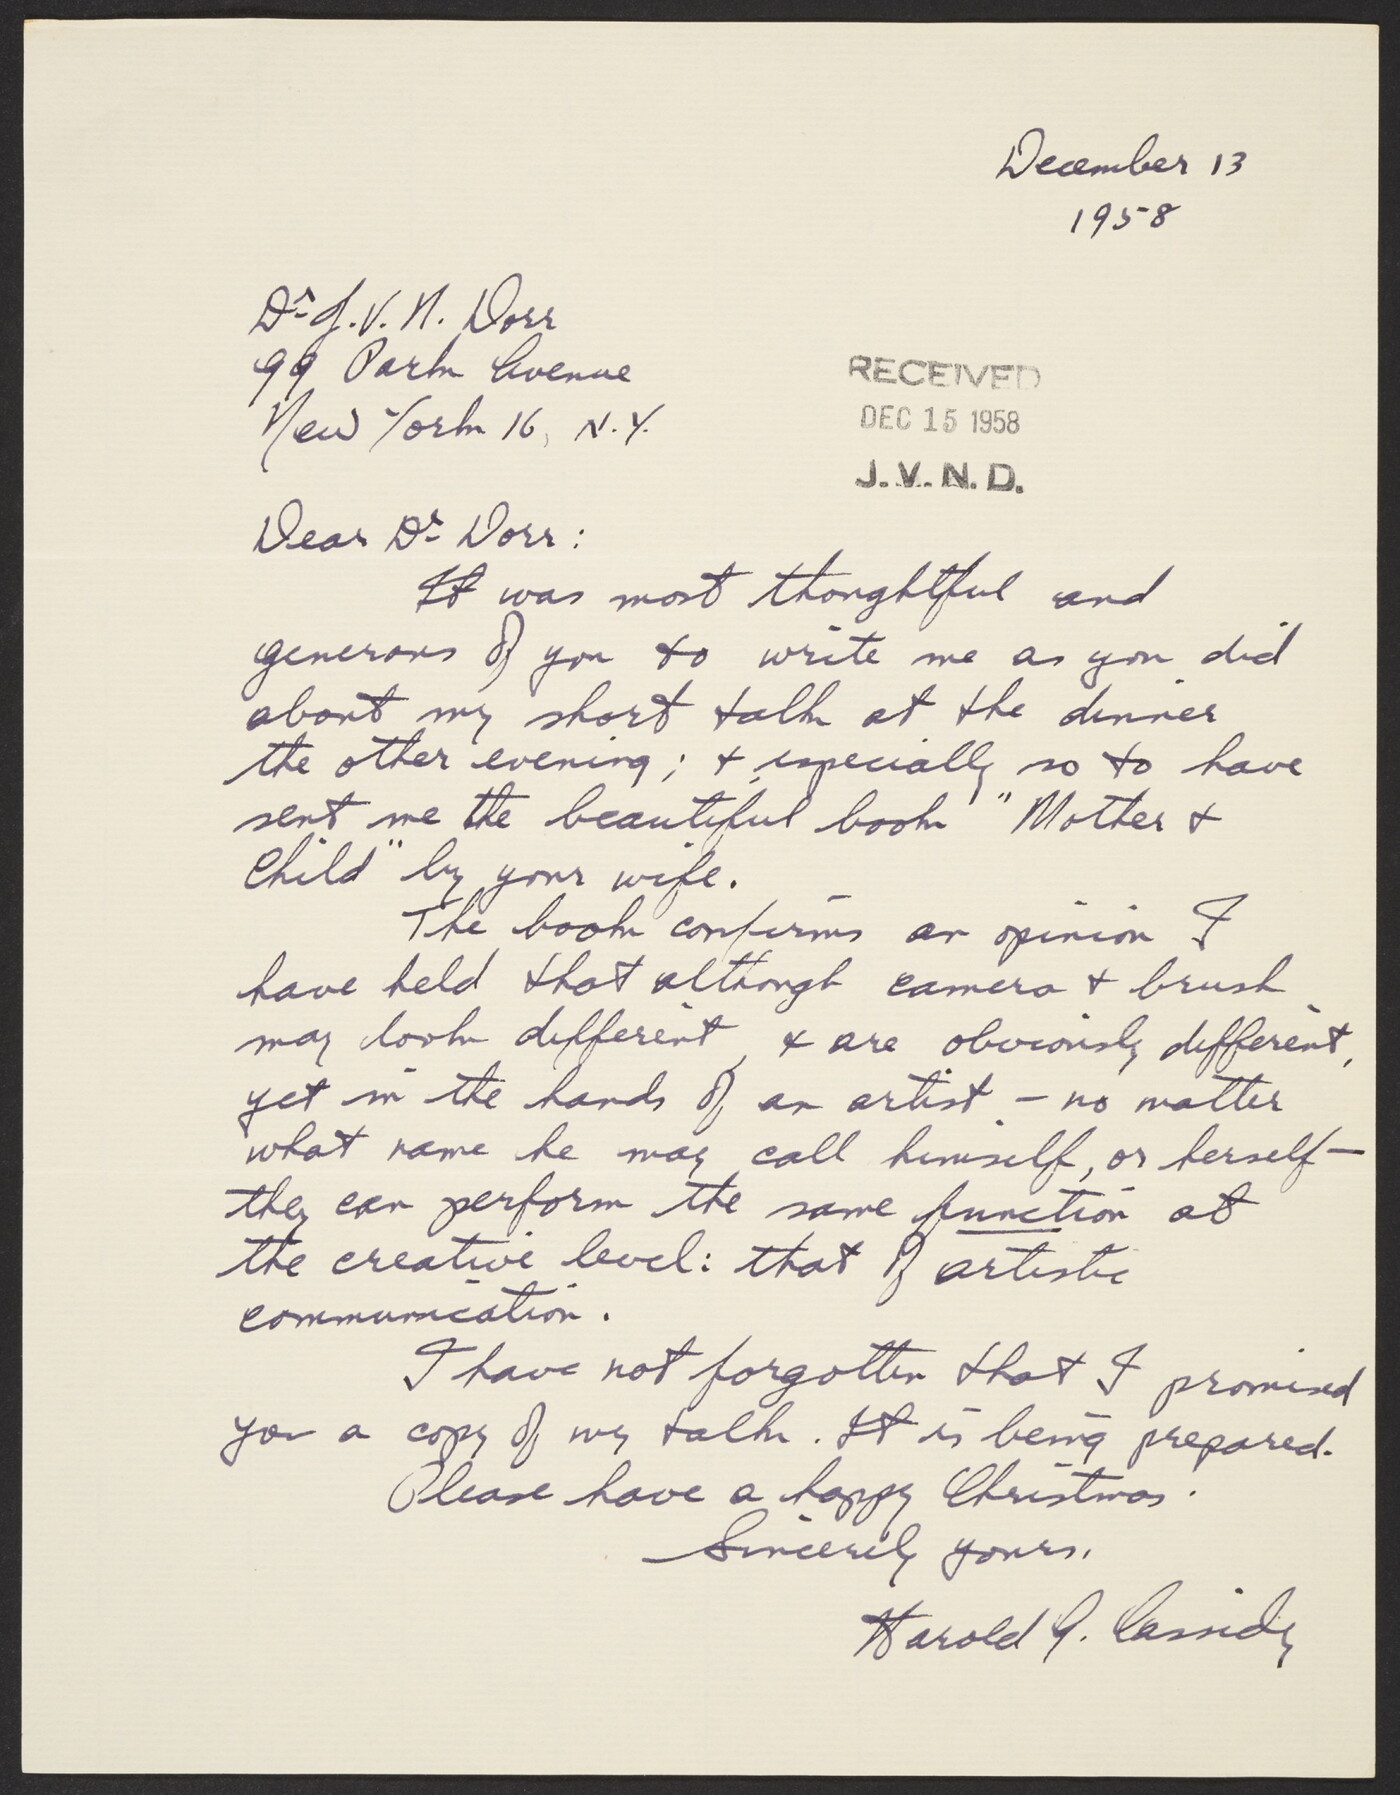 December 13
1958
Dr. J. V. N. Dorr
99 Park Avenue
New York 16, N.Y.
RECEIVED
DEC 15 1958
J. V. N. D.
Dear Dr. Dorr:
It was most thoughtful and
generous of you to write me as you did
about my short talk at the dinner
the other evening; & especially so to have
sent me the beautiful book "Mother &
Child" by your wife.
The book confirms an opinion I
have held that although camera & brush
may look different, & are obviously different,
yet in the hands of an artist - no matter
what name he may call himself, or herself -
they can perform the same function at
the creative level: that of artistic
communication.
I have not forgotten that I promised
you a copy of my talk. It is being prepared.
Please have a happy Christmas.
Sincerely yours,
Harold G. Cassidy